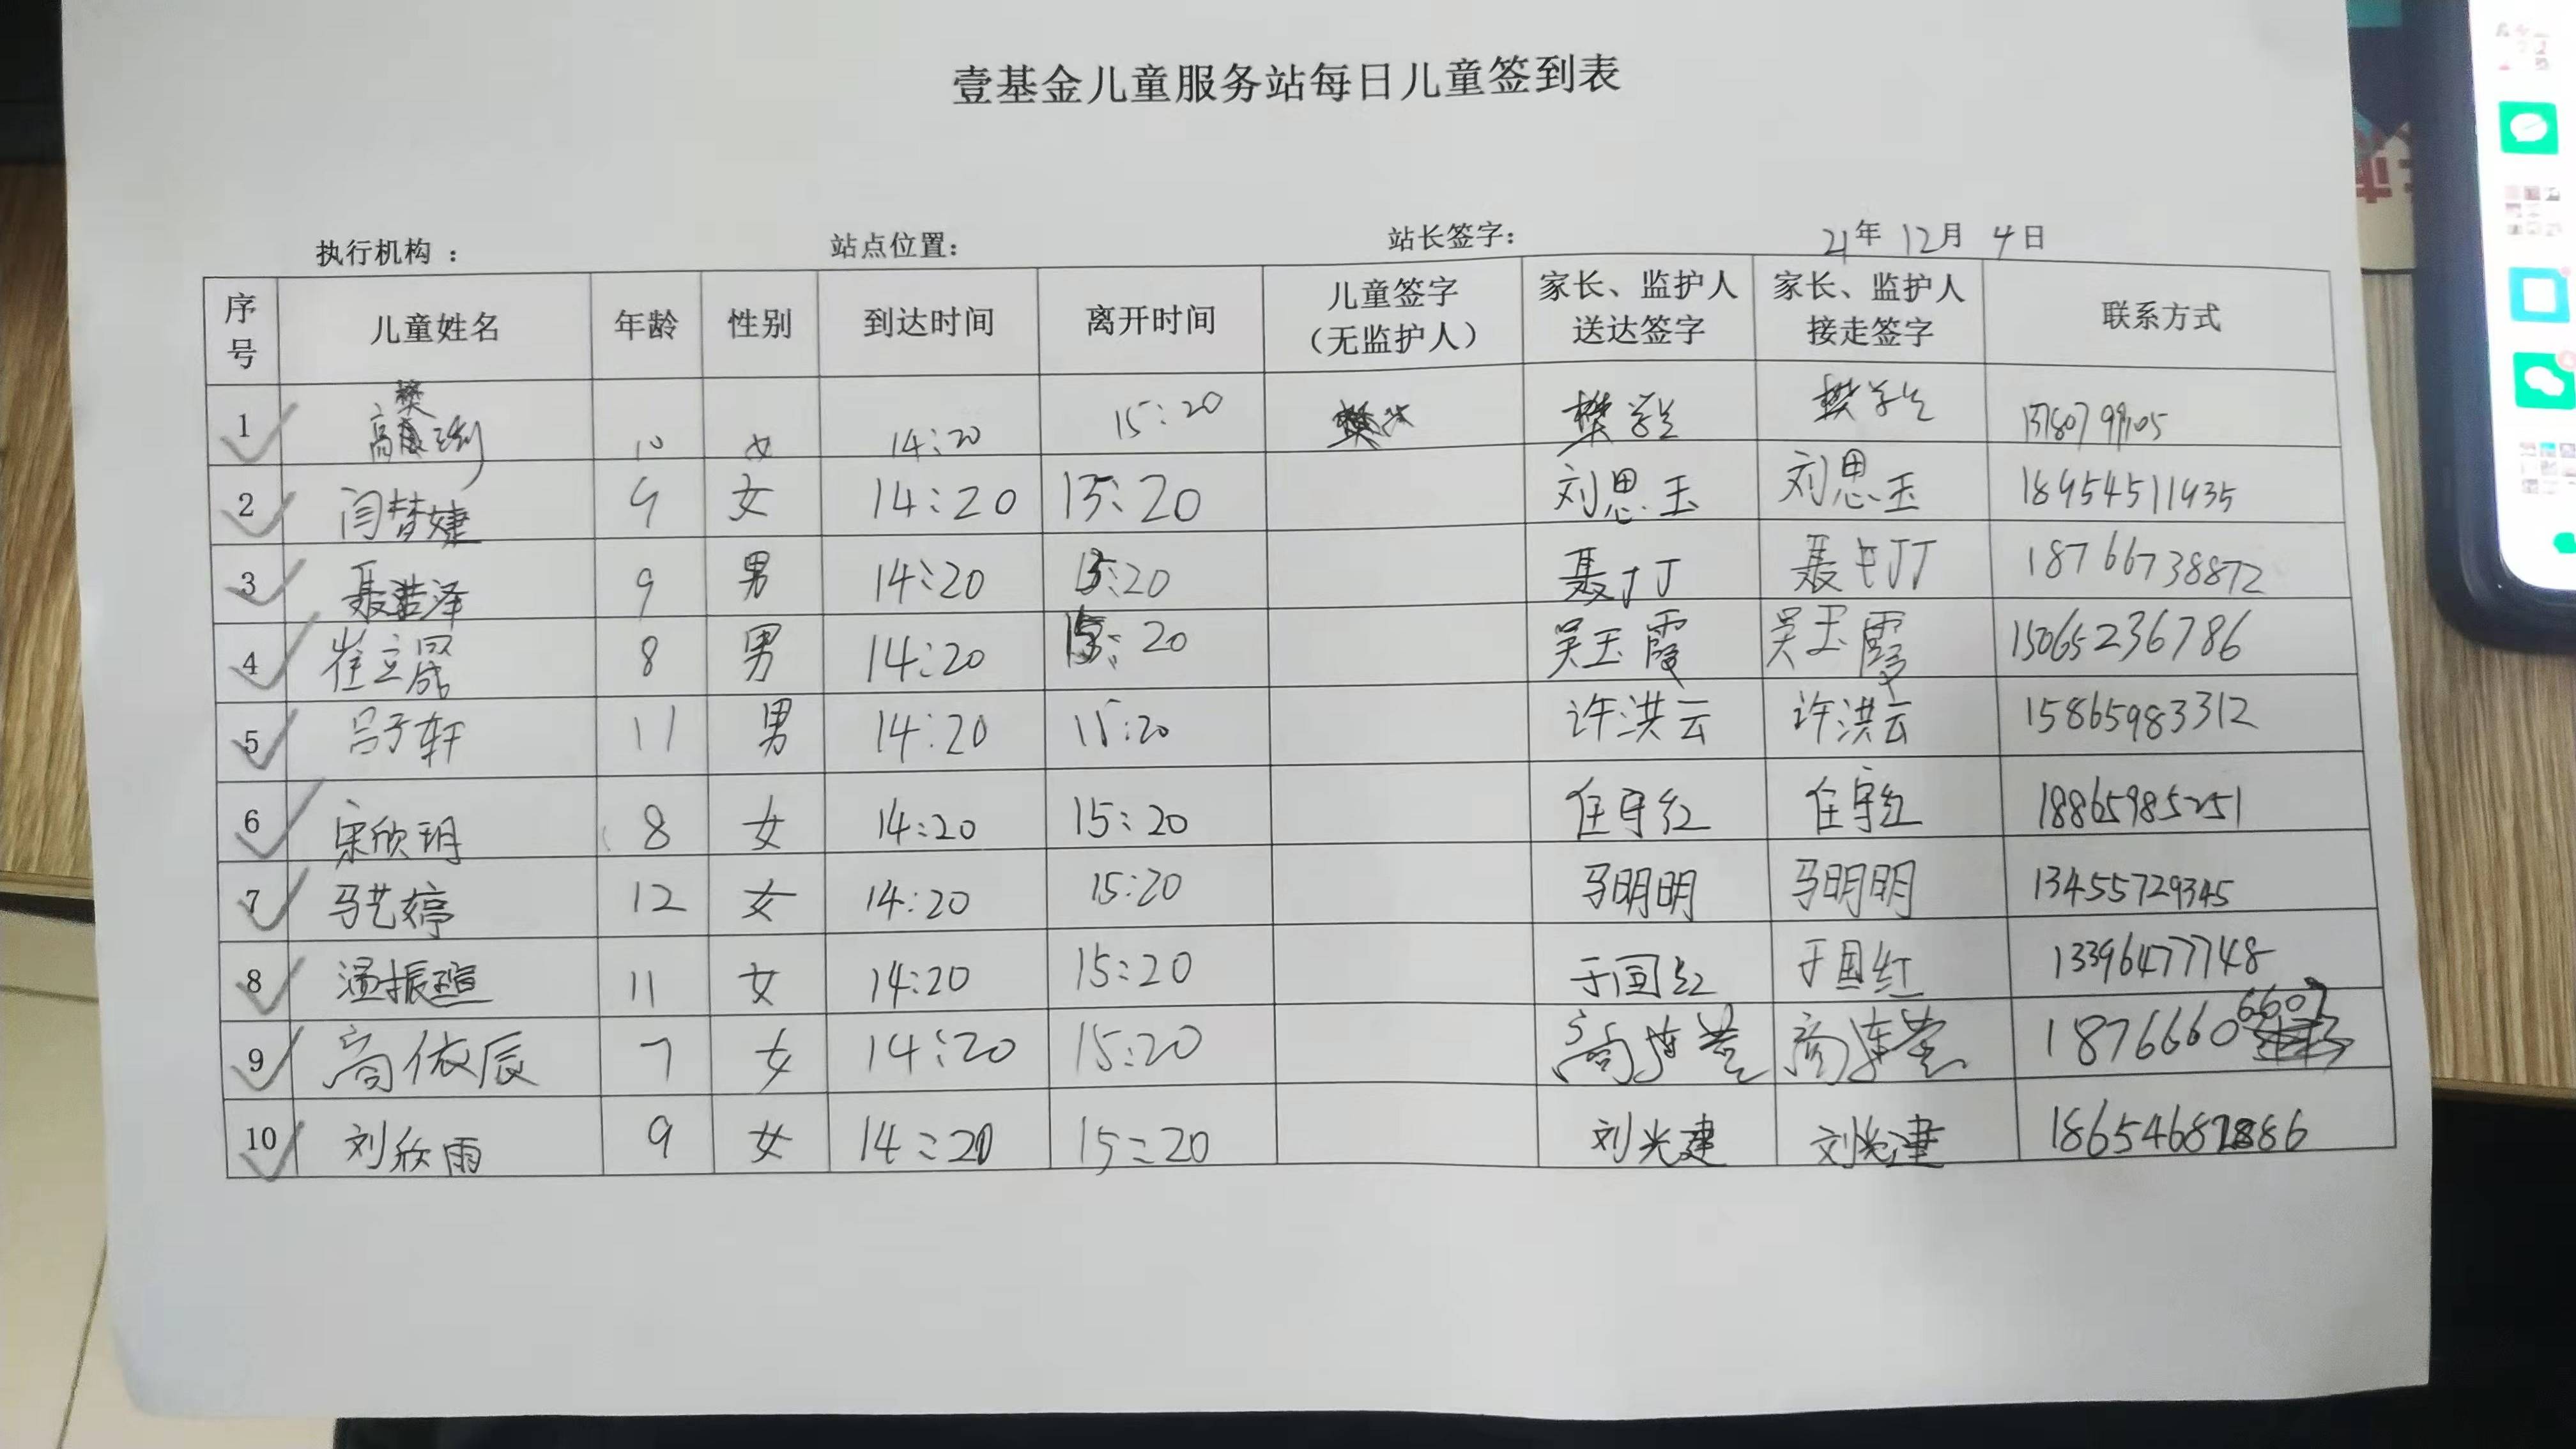 壹基金儿童服务站每日儿童签到表
执行机构 : 站点位置: 站长签字: 21年 12月 4日
序号 儿童姓名 年龄 性别 到达时间 离开时间 儿童签字（无监护人） 家长、监护人送达签字 家长、监护人接走签字 联系方式
1 10 女 14:20 15:20 樊 樊
2 闫梦婕 9 女 14:20 15:20 刘思玉 刘思玉 18954511935
3 聂浩泽 9 男 14:20 15:20 聂 聂 18766738872
4 崔立晟 8 男 14:20 15:20 吴玉霞 吴玉霞 15065236786
5 吕子轩 11 男 14:20 15:20 许洪云 许洪云 15865983312
6 宋欣玥 8 女 14:20 15:20 任守红 任守红 18865985251
7 马艺婷 12 女 14:20 15:20 马明明 马明明 13455729345
8 振瑄 11 女 14:20 15:20 于国红 于国红 13396477748
9 高依辰 7 女 14:20 15:20 高 高 18766606607
10 刘欣雨 9 女 14:20 15:20 刘光建 刘光建